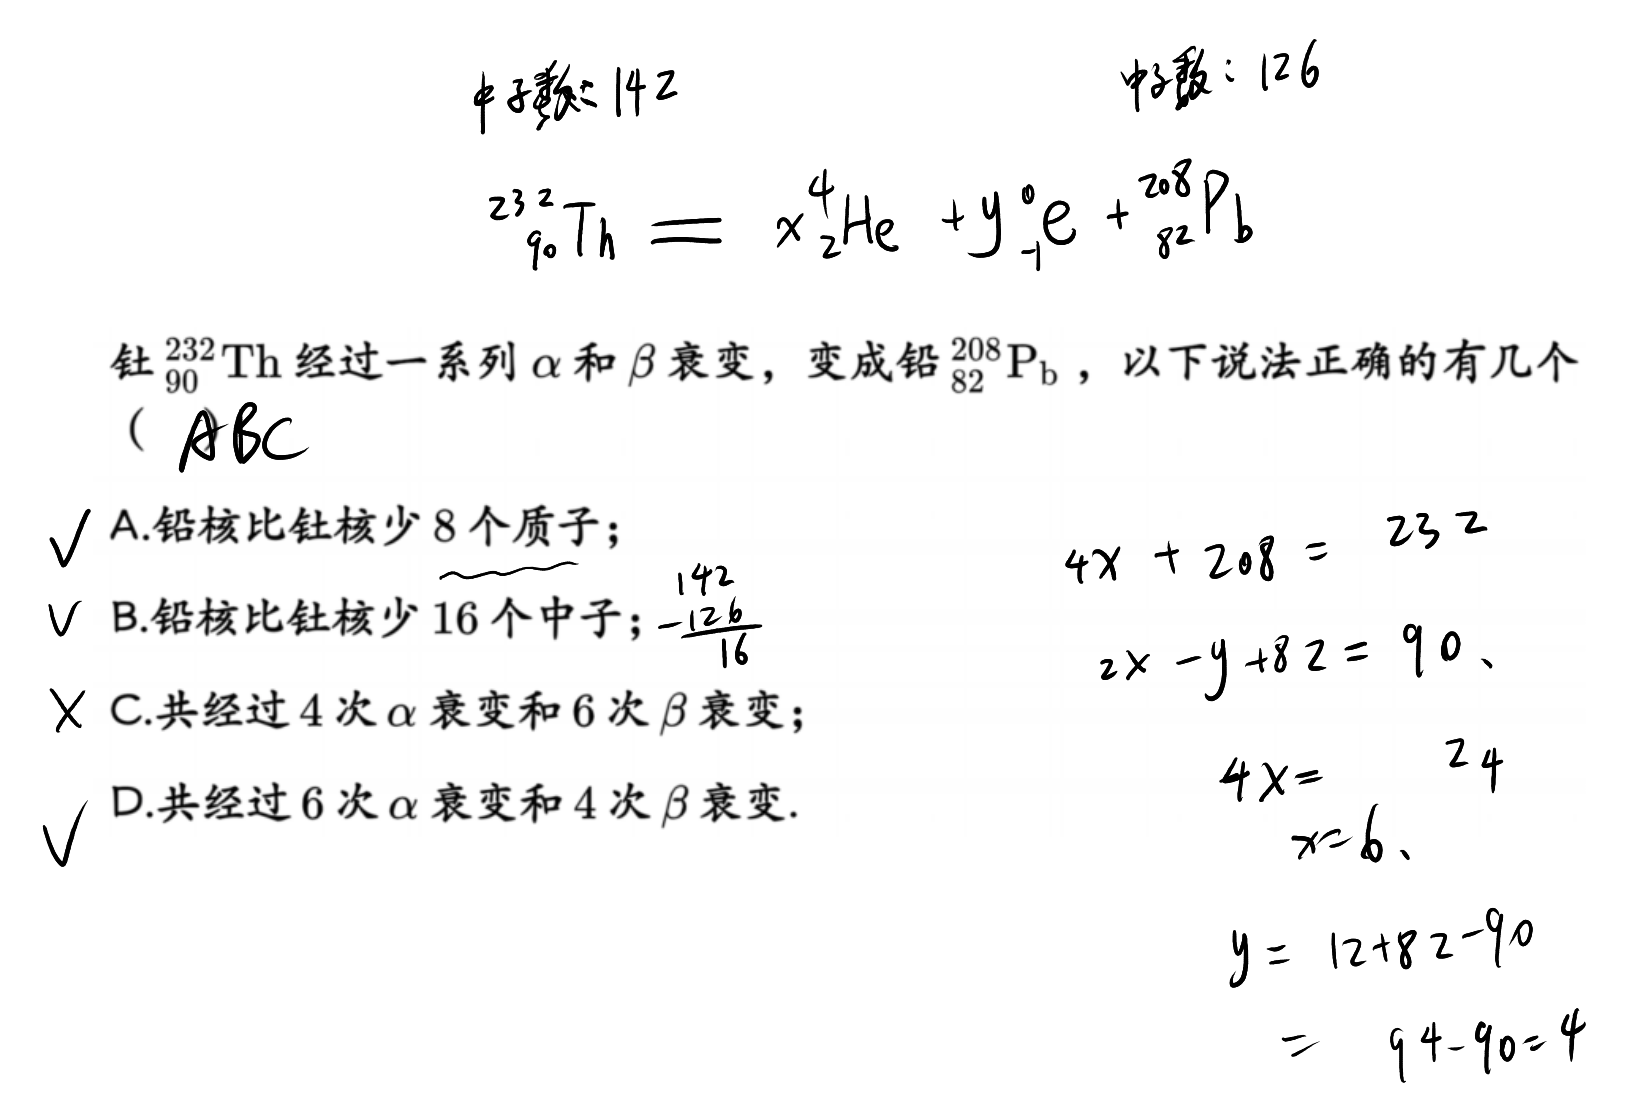 中子数：142
中子数：126
²³²₉₀Th = x⁴₂He + y⁰₋₁e + ²⁰⁸₈₂Pb
钍 ²³²₉₀Th 经过一系列 α 和 β 衰变，变成铅 ²⁰⁸₈₂Pb ，以下说法正确的有几个
（ABC）
√ A.铅核比钍核少 8 个质子；
√ B.铅核比钍核少 16 个中子；
142
-126
16
× C.共经过 4 次 α 衰变和 6 次 β 衰变；
√ D.共经过 6 次 α 衰变和 4 次 β 衰变.
4x + 208 = 232
2x - y + 82 = 90、
4x = 24
x = 6、
y = 12+82-90
= 94-90=4